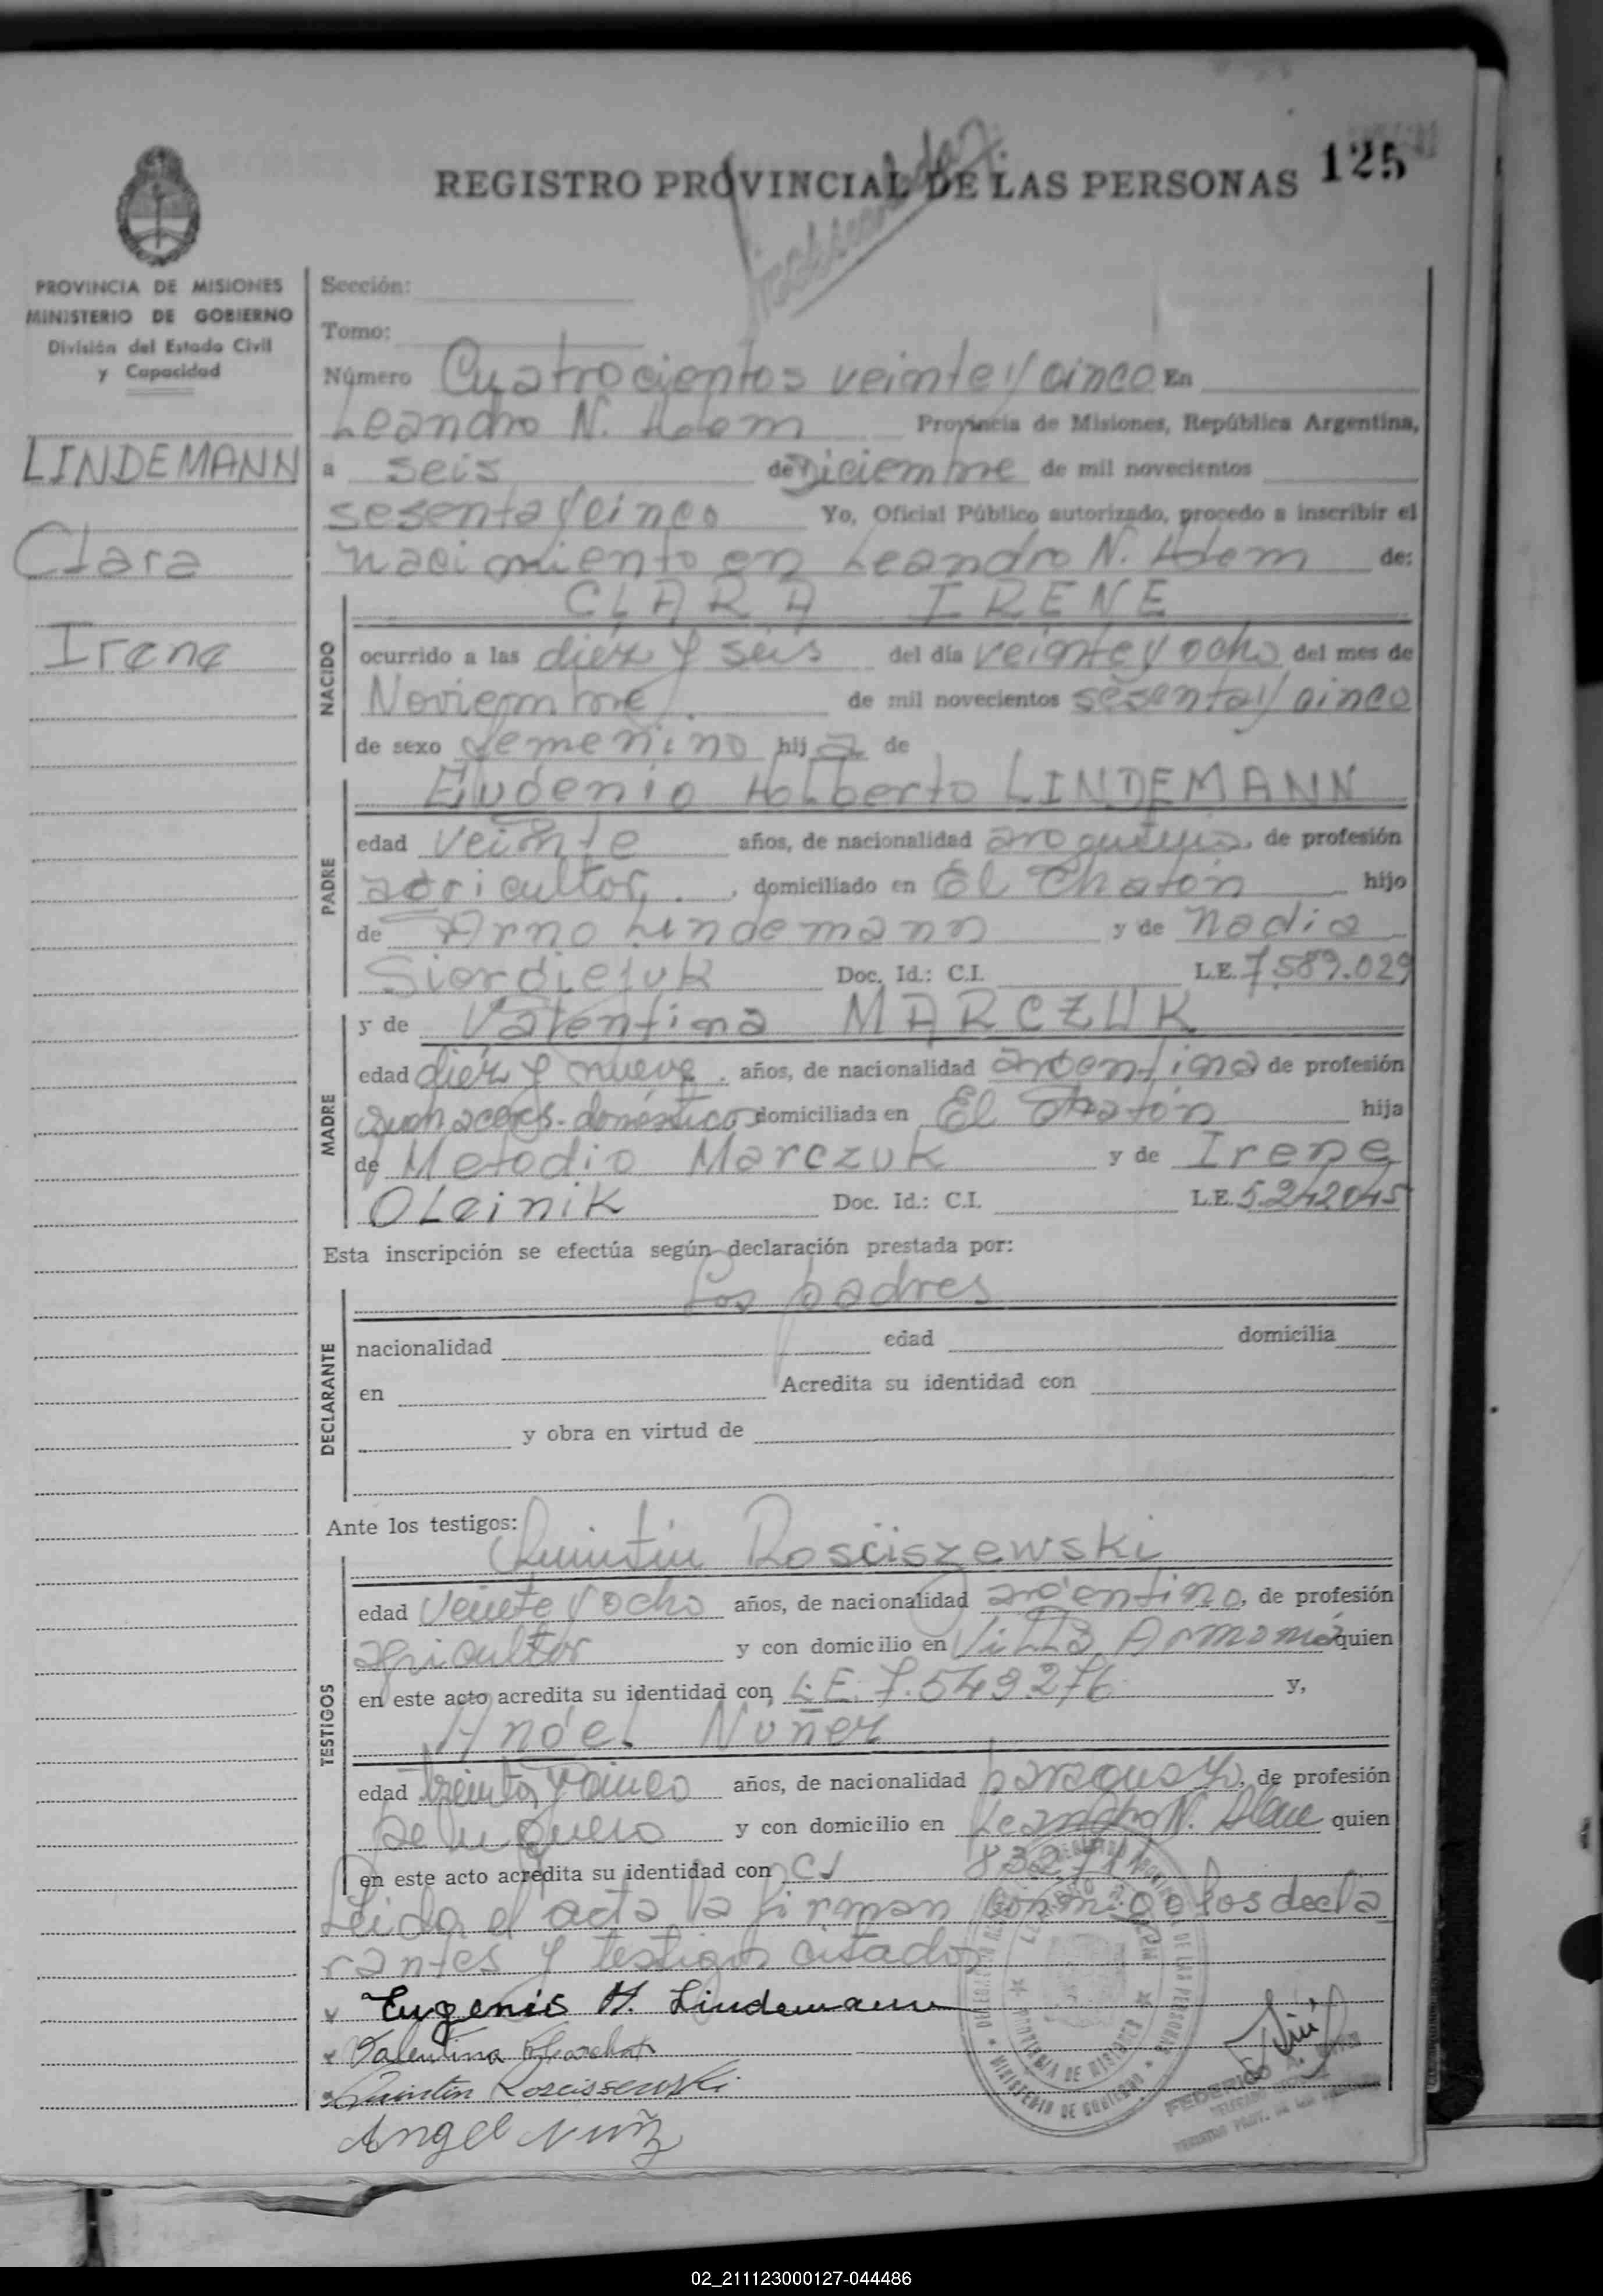 REGISTRO PROVINCIAL DE LAS PERSONAS 125
PROVINCIA DE MISIONES
MINISTERIO DE GOBIERNO
División del Estado Civil
y Capacidad
LINDEMANN
Clara
Irene
Sección:
Tomo:
Número Cuatrocientos veinte y cinco En
Leandro N. Alem Provincia de Misiones, República Argentina,
a seis de Diciembre de mil novecientos
sesenta y cinco Yo, Oficial Público autorizado, procedo a inscribir el
nacimiento en Leandro N. Alem de:
CLARA IRENE
NACIDO
ocurrido a las diéz y seis del día veinte y ocho del mes de
Noviembre de mil novecientos sesenta y cinco
de sexo femenino hija de
Eugenio Holberto LINDEMANN
PADRE
edad veinte años, de nacionalidad argentina, de profesión
agricultor, domiciliado en El Chatón hijo
de Arno Lindemann y de Nadia
Doc. Id.: C.I. L.E. 7.589.029
MADRE
y de Valentina MARCZUK
edad diéz y nueve años, de nacionalidad argentina de profesión
quehaceres domésticos domiciliada en El Chatón hija
de Metodio Marczuk y de Irene
OLeinik Doc. Id.: C.I. L.E. 5.242045
Esta inscripción se efectúa según declaración prestada por:
Los padres
DECLARANTE
nacionalidad edad domicilia
en Acredita su identidad con
y obra en virtud de
Ante los testigos:
Quintin Rosciszewski
TESTIGOS
edad veinte y ocho años, de nacionalidad argentino, de profesión
agricultor y con domicilio en Villa Armonia quien
en este acto acredita su identidad con L.E. 7.549.276 y,
Angel Nuñez
edad treinta y cinco años, de nacionalidad paraguayo, de profesión
peluquero y con domicilio en Leandro N. Alem quien
en este acto acredita su identidad con CI
Leida el acta la firman conmigo los decla
rantes y testigos citados
Eugenio H. Lindemann
Valentina
Quintin Roscissewski
Angel Nuñz
MINISTERIO DE GOBIERNO
PROVINCIA DE MISIONES
FEDERICO
02_211123000127-044486